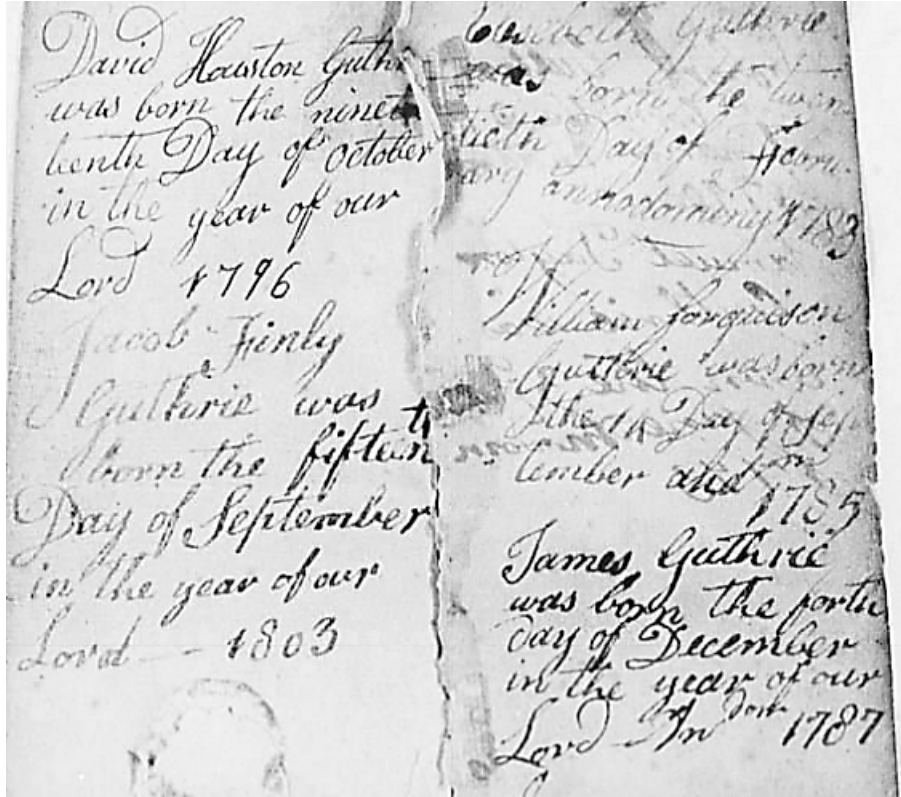 David Houston Guthr
was born the ninet
teenth Day of October
in the year of our
Lord 1796
Jacob Finly
Guthrie was
born the fifteen
Day of September
in the year of our
Lord — 1803
Guthrie
was born the twen
tieth Day of
ary annodominy 1783
William forguison
Guthrie was born
the Day of Sep
tember and
1785
James Guthrie
was born the forth
day of December
in the year of our
Lord An dom 1787